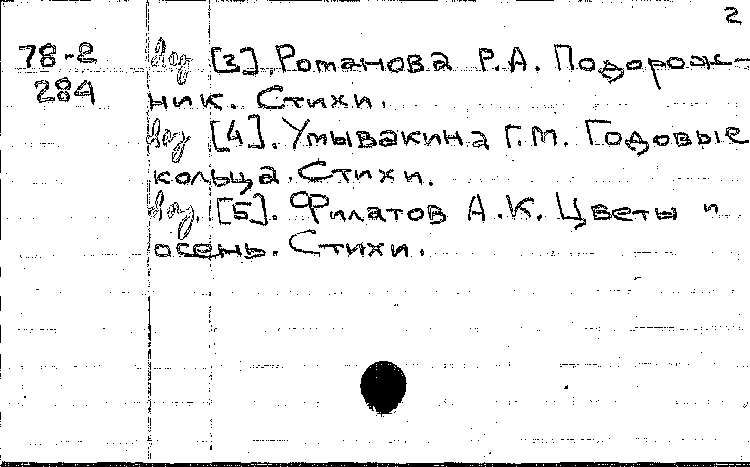 2
78-8 [3]. Романова Р.А. Подорож-
284 ник. Стихи.
[4]. Умывакина Г.М. Годовые
кольца. Стихи.
[5]. Филатов А.К. Цветы и
осень. Стихи.